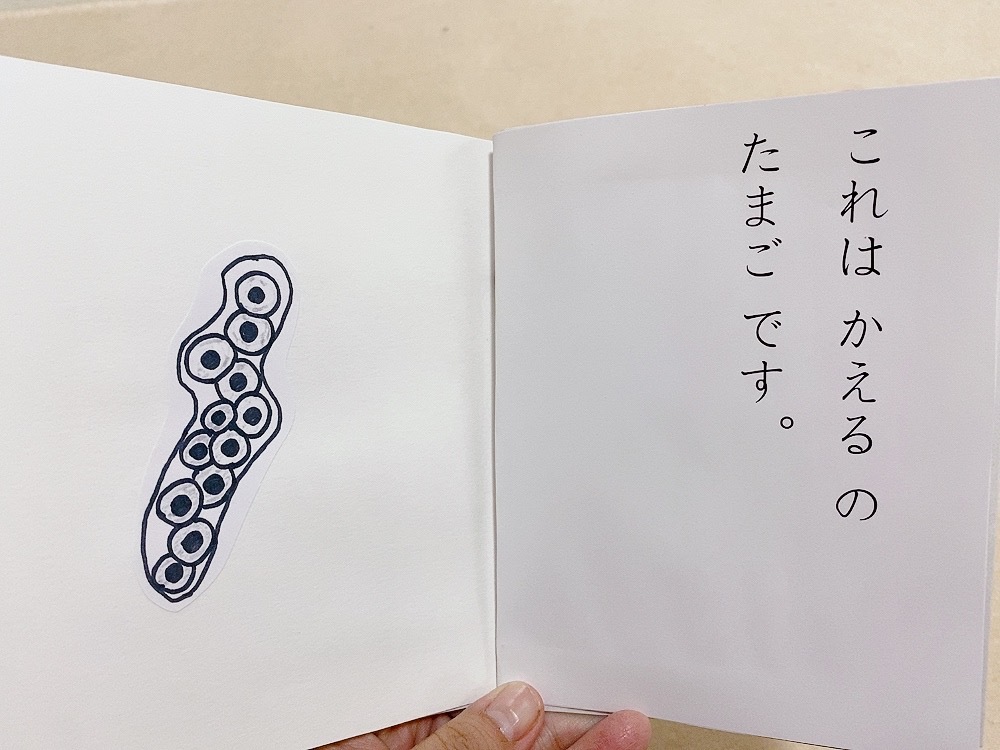 これは かえる の
たまご です。